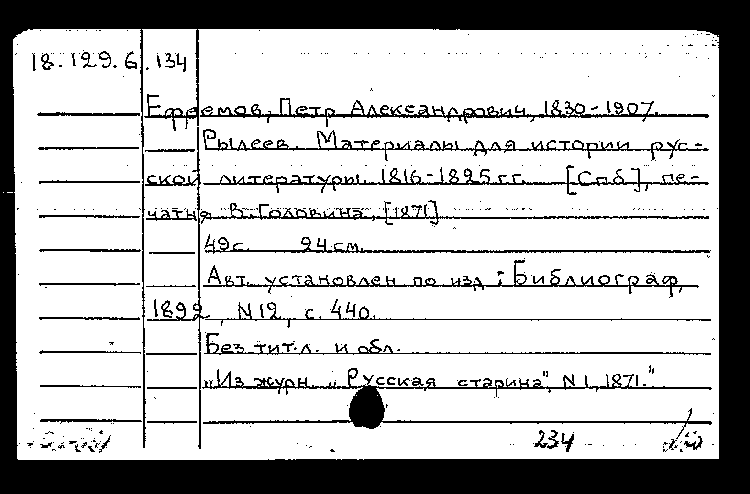 18.129.6.134
Ефремов, Петр Александрович, 1830-1907.
Рылеев. Материалы для истории рус-
ской литературы. 1816-1825 г.г. [Спб], пе-
чатня В. Головина, [1871]
49 с. 24 см.
Авт. установлен по изд.: Библиограф,
1892, N12, с. 440.
Без тит. л. и обл.
„Из журн. „Русская старина", N 1, 1871."
234